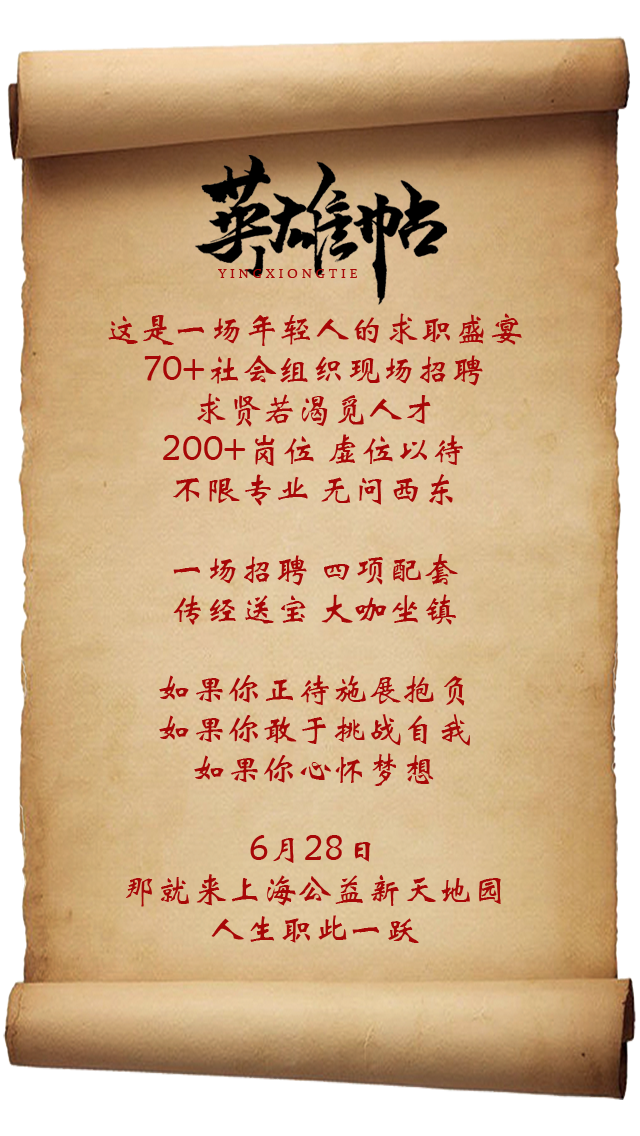 英雄帖
YINGXIONGTIE
这是一场年轻人的求职盛宴
70+社会组织现场招聘
求贤若渴觅人才
200+岗位 虚位以待
不限专业 无问西东
一场招聘 四项配套
传经送宝 大咖坐镇
如果你正待施展抱负
如果你敢于挑战自我
如果你心怀梦想
6月28日
那就来上海公益新天地园
人生职此一跃